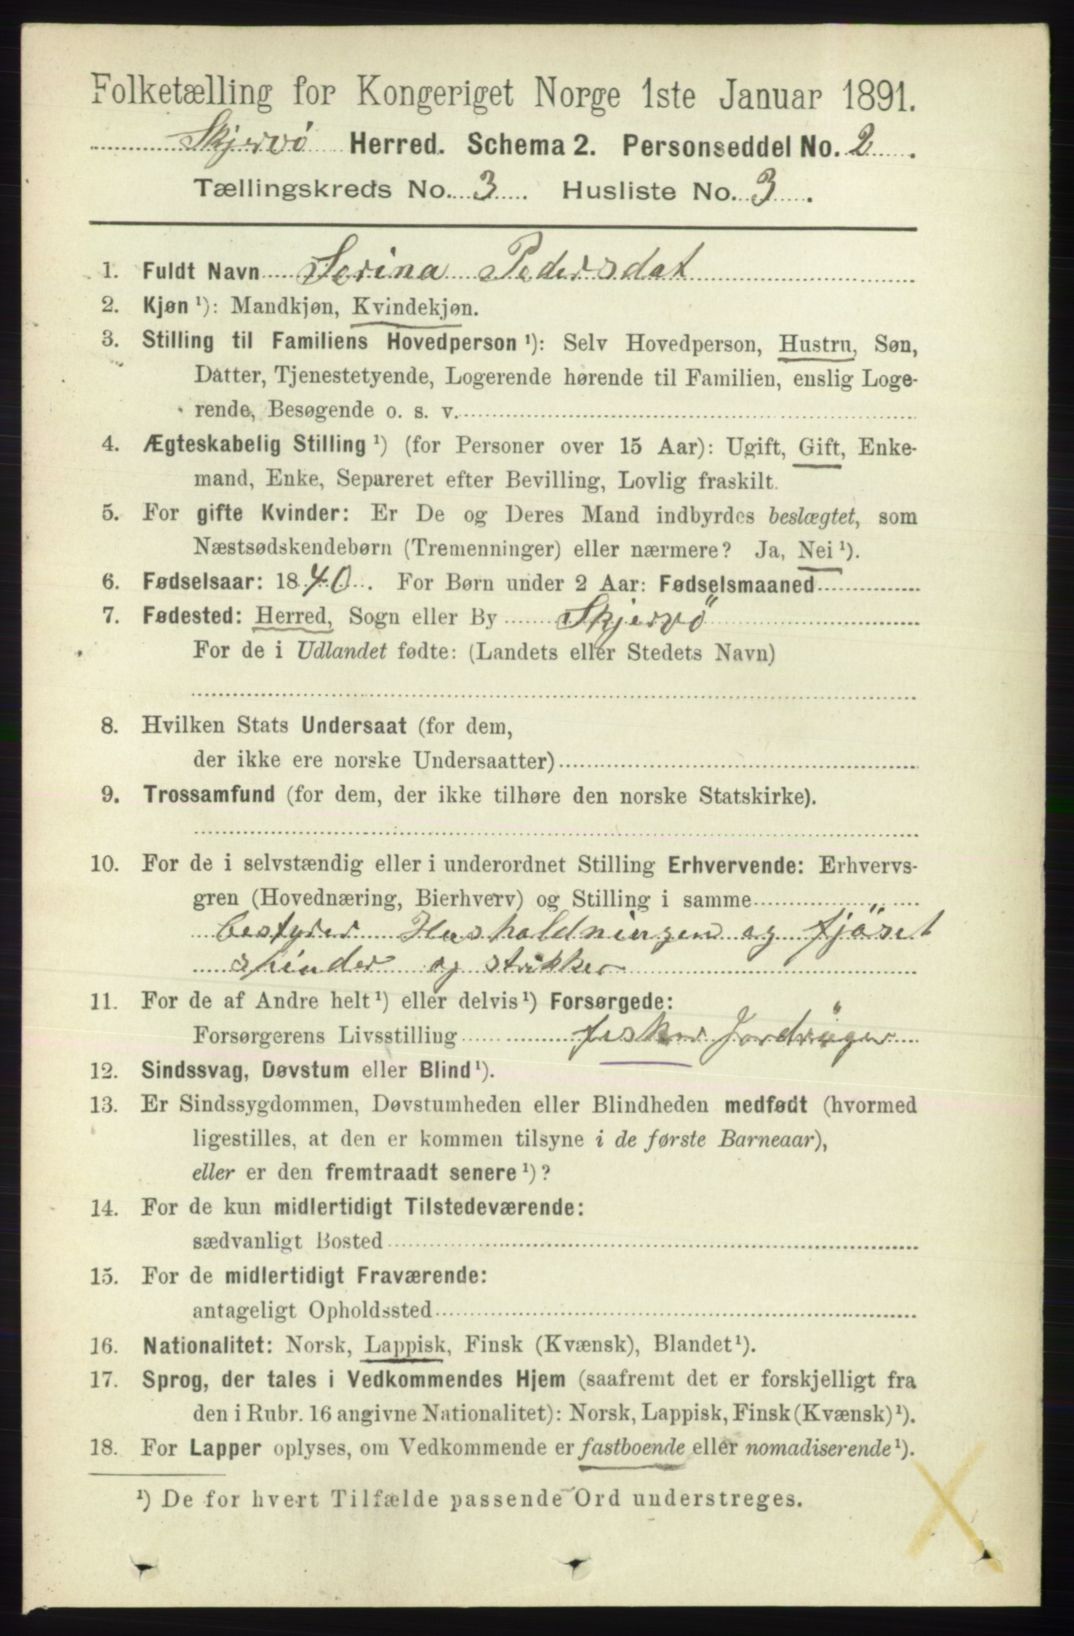 Folketælling for Kongeriget Norge 1ste Januar 1891.
Skjervö Herred. Schema 2. Personseddel No. 2.
Tællingskreds No. 3. Husliste No. 3.
1. Fuldt Navn Serina Pedersdat
2. Kjøn ¹): Mandkjøn, Kvindekjøn.
3. Stilling til Familiens Hovedperson ¹): Selv Hovedperson, Hustru, Søn,
Datter, Tjenestetyende, Logerende hørende til Familien, enslig Loge-
rende, Besøgende o. s. v.
4. Ægteskabelig Stilling ¹) (for Personer over 15 Aar): Ugift, Gift, Enke-
mand, Enke, Separeret efter Bevilling, Lovlig fraskilt.
5. For gifte Kvinder: Er De og Deres Mand indbyrdes beslægtet, som
Næstsødskendebørn (Tremenninger) eller nærmere? Ja, Nei ¹).
6. Fødselsaar: 1840. For Børn under 2 Aar: Fødselsmaaned
7. Fødested: Herred, Sogn eller By Skjervö
For de i Udlandet fødte: (Landets eller Stedets Navn)
8. Hvilken Stats Undersaat (for dem,
der ikke ere norske Undersaatter)
9. Trossamfund (for dem, der ikke tilhøre den norske Statskirke).
10. For de i selvstændig eller i underordnet Stilling Erhvervende: Erhvervs-
gren (Hovednæring, Bierhverv) og Stilling i samme
bestyrer Husholdningen og fjöset
spinder og strikker
11. For de af Andre helt ¹) eller delvis ¹) Forsørgede:
Forsørgerens Livsstilling fisker Jordbruger
12. Sindssvag, Døvstum eller Blind ¹).
13. Er Sindssygdommen, Døvstumheden eller Blindheden medfødt (hvormed
ligestilles, at den er kommen tilsyne i de første Barneaar),
eller er den fremtraadt senere ¹)?
14. For de kun midlertidigt Tilstedeværende:
sædvanligt Bosted
15. For de midlertidigt Fraværende:
antageligt Opholdssted
16. Nationalitet: Norsk, Lappisk, Finsk (Kvænsk), Blandet ¹).
17. Sprog, der tales i Vedkommendes Hjem (saafremt det er forskjelligt fra
den i Rubr. 16 angivne Nationalitet): Norsk, Lappisk, Finsk (Kvænsk) ¹).
18. For Lapper oplyses, om Vedkommende er fastboende eller nomadiserende ¹).
¹) De for hvert Tilfælde passende Ord understreges.